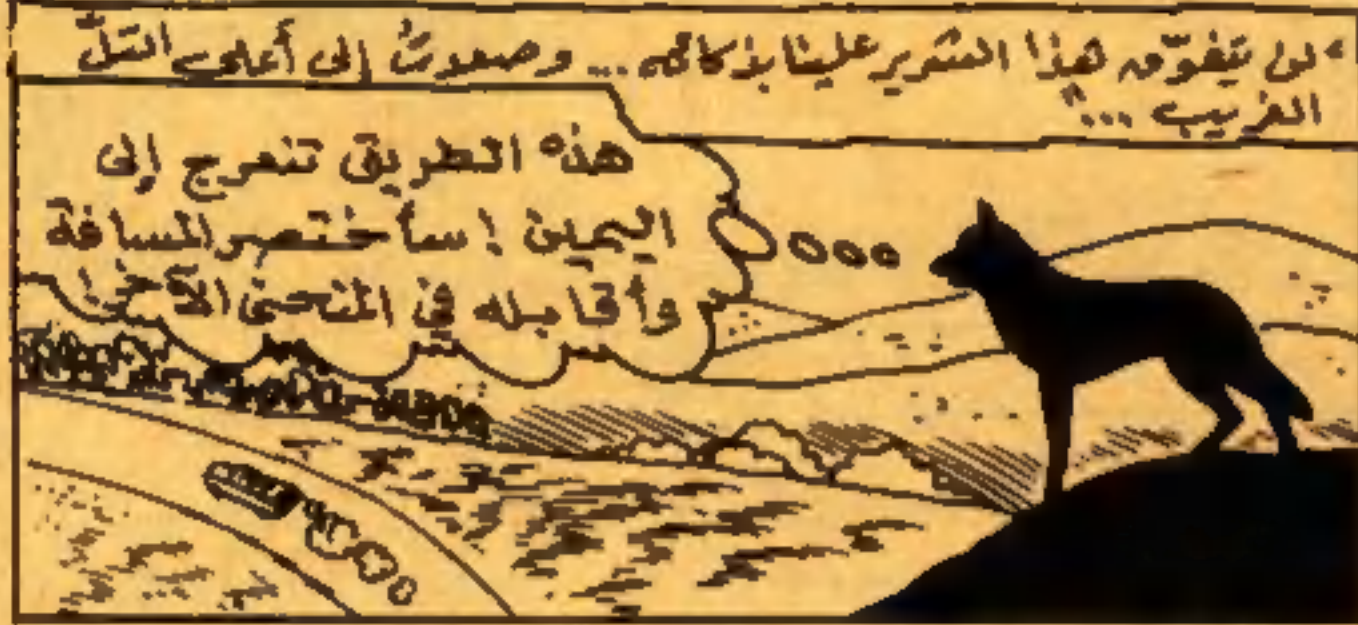 "لن يتفوّق هذا الشرير علينا بذكائه ... وصعدتُ إلى أعلى التلّ
القريب ..."
هذه الطريق تنعرج إلى
اليمين ! سأختصر المسافة
وأقابله في المنحنى الآخر!